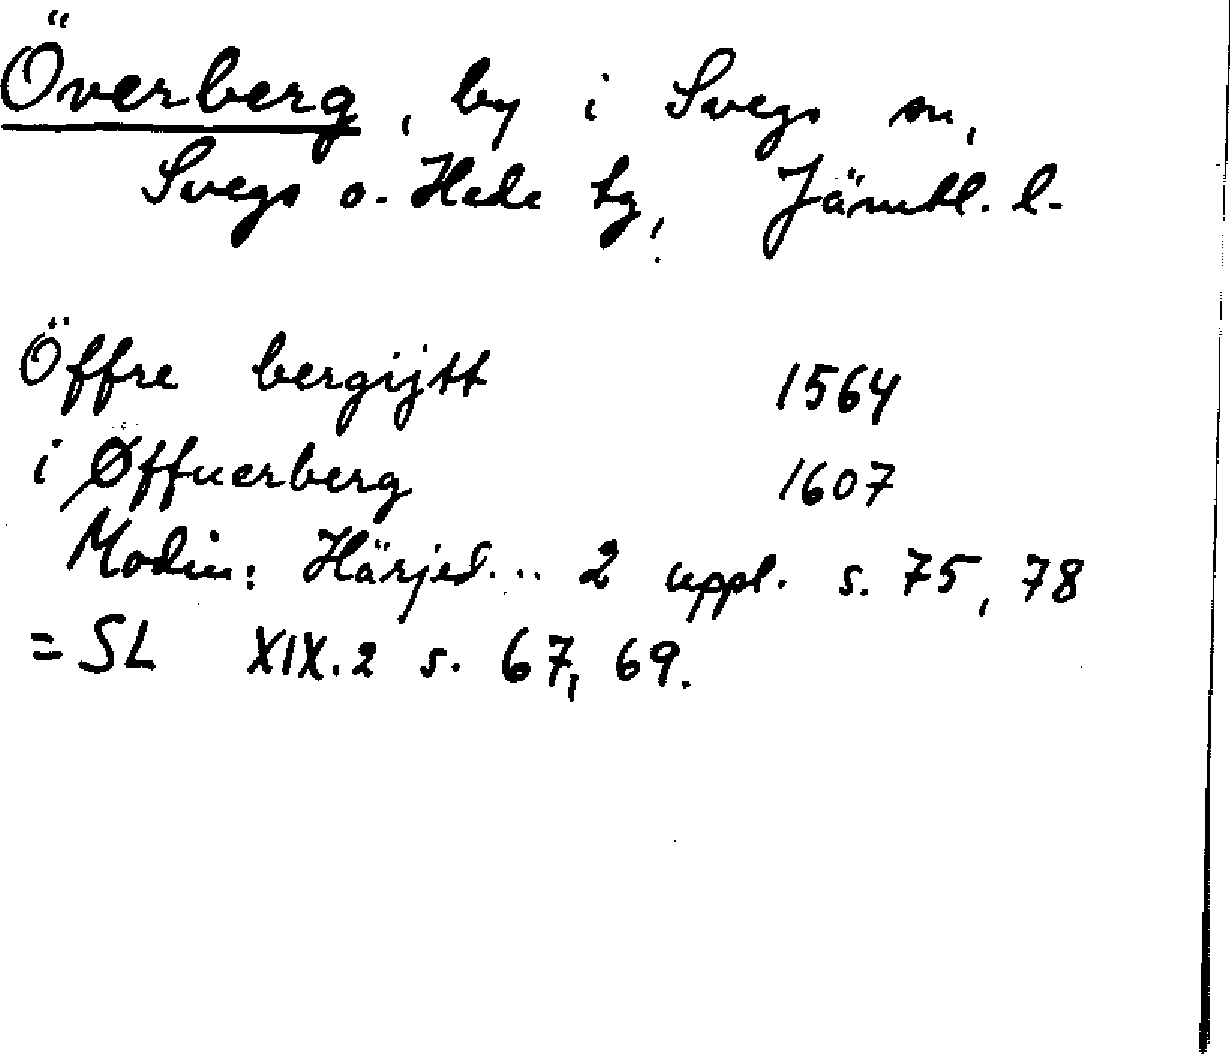 Överberg, by i Svegs sn,
Svegs o. Hede tg, Jämtl. l.
Öffre bergijtt 1564
i Øffuerberg 1607
Modin: Härjed... 2 uppl. s. 75, 78
= SL XIX.2 s. 67, 69.